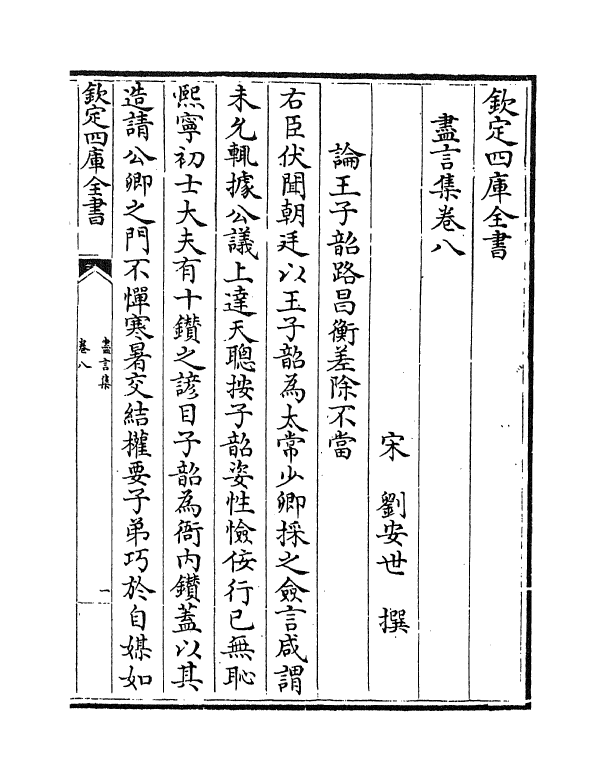 欽定四庫全書
盡言集卷八
宋 劉安世 撰
論王子韶路昌衡差除不當
右臣伏聞朝廷以王子韶為太常少卿採之僉言咸謂
未允輒據公議上達天聰按子韶姿性憸佞行已無恥
熈寧初士大夫有十鑚之諺目子韶為衙内鑚蓋以其
造請公卿之門不憚寒暑交結權要子弟巧於自媒如
欽定四庫全書
盡言集
卷八
一